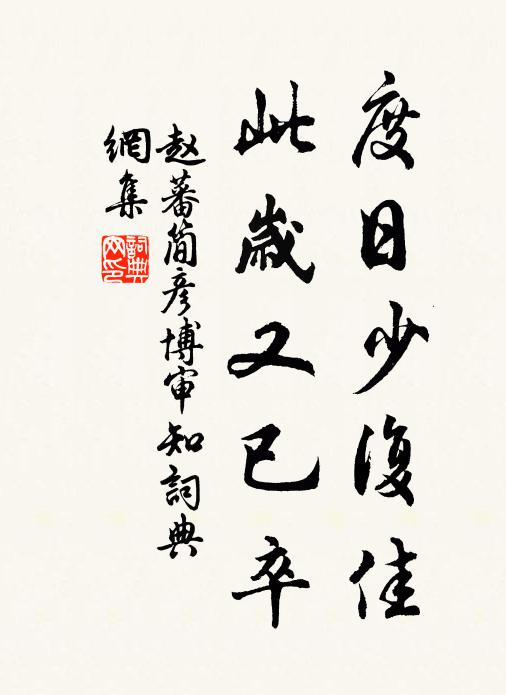 度日少復佳
此歲又已卒
赵蕃简彥博审知詞典
網集
詞典
网印